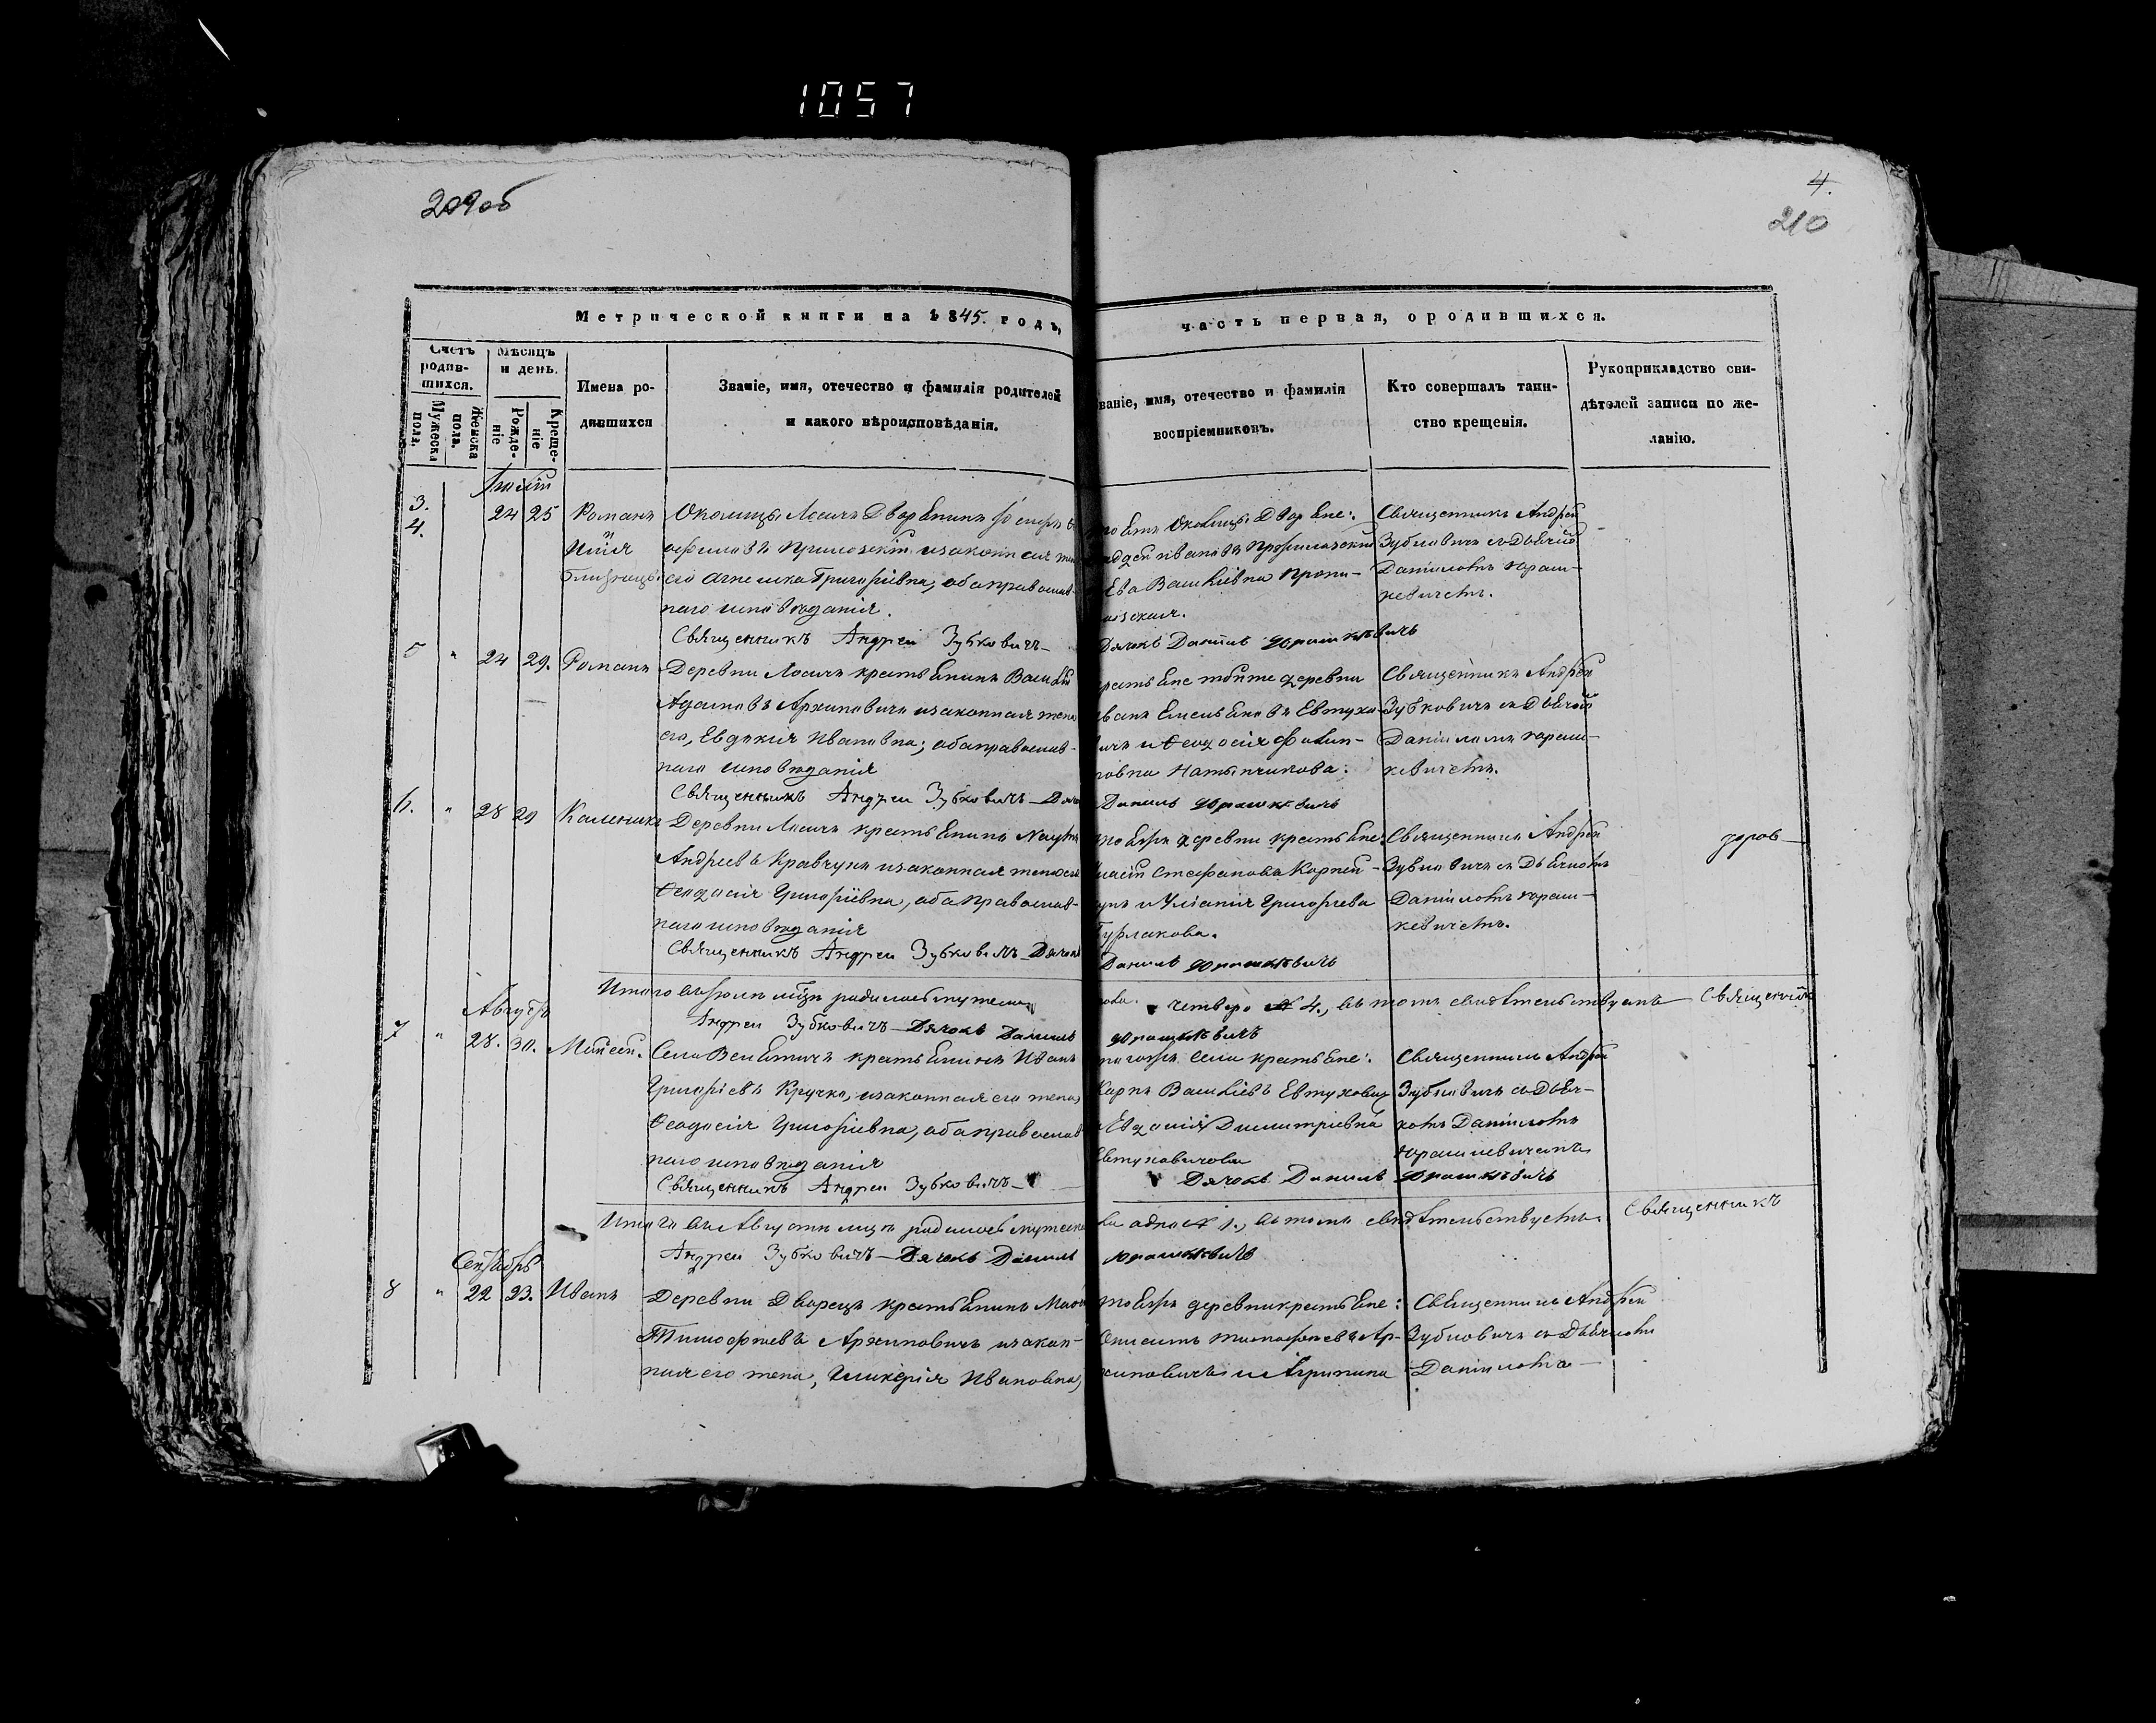 1057
209об
4.
210
Метрической книги на 1845. годъ,
часть первая, ородившихся.
Счетъ родив-
шихся.
Мужеска пола.
Женска пола.
Мѣсяцъ и день.
Рожде-
ніе
Креще-
ніе
Имена ро-
дившихся
Званіе, имя, отечество и фамилія родителей
и какого вѣроисповѣданія.
ваніе, имя, отечество и фамилія
воспріемниковъ.
Кто совершалъ таин-
ство крещенія.
Рукоприкладство сви-
дѣтелей записи по же-
ланію.
3.
4.
24 25 Романъ
Илія
близнецы
Околицы Лосичъ Дворянинъ
его Агнешка Григоріевна, оба православ-
наго исповѣданія.
Священникъ Андрей Зубковичъ
тоѣжъ Околицы Дворяне:
Ева Васильевна
Священникъ Андрей
Зубковичъ съ Дьячкомъ
Даніиломъ Юраш-
кевичемъ.
Дячокъ Даниилъ Юрашкевичъ
5 " 24 29. Романъ
Деревни Лосичъ крестьянинъ Василій
Адамовъ Архиповичъ изаконная жена
его, Евдокія Ивановна; оба православ-
наго исповѣданія
Священникъ Андрей Зубковичъ
крестьяне тойже деревни
Иванъ Емельяновъ Евтухо-
вичъ и Ѳеодосія Филип-
повна
Даниилъ Юрашкевичъ
Священникъ Андрей
Зубковичъ съ Дьячкомъ
Даніиломъ Юраш-
кевичемъ.
6. " 28 29 Каленикъ
Деревни Лосичъ крестьянинъ Наумъ
Андреевъ Кравчукъ изаконная жена его
Ѳеодосія Григоріевна, оба православ-
наго исповѣданія
Священникъ Андрей Зубковичъ Дячокъ
тоѣжъ деревни крестьяне
Стефановъ Корней-
чукъ и Уліанія Григорьева
Бурлакова.
Даниилъ Юрашкевичъ
Священникъ Андрей
Зубковичъ съ Дьячкомъ
Даніиломъ Юраш-
кевичемъ.
Итого въ Іюлѣ мѣсцѣ родилось мужеска
пола четверо № 4., въ томъ свидѣтельствуемъ Священникъ
Андрей Зубковичъ Дячокъ Даниилъ Юрашкевичъ
Августъ
7 " 28. 30. Моисей.
Села Велятичъ крестьянинъ Иванъ
Григорьевъ Кручко, изаконная его жена,
Ѳеодосія Григоріевна, оба православ
наго исповѣданія
Священникъ Андрей Зубковичъ
тогожъ села крестьяне:
Карпъ Васильевъ Евтухович
Димитріевна
Евтуховичова
Дячокъ Даниилъ Юрашкевичъ
Священникъ Андрей
Зубковичъ съ Дьяч-
комъ Даніиломъ
Юрашкевичемъ
Итого въ Августѣ мсцѣ родилось мужеска
пола одно № 1., въ томъ свидѣтельствуемъ Священникъ
Андрей Зубковичъ Дячокъ Даниилъ Юрашкевичъ
Сентябрь
8 " 22 23. Иванъ
Деревни Дворецъ крестьянинъ
Тимофѣевъ Архиповичъ изакон-
ная его жена, Гликерія Ивановна,
тоѣжъ деревни крестьяне:
Онисимъ Тимофѣевъ Ар-
хиповичъ и Агрипина
Священникъ Андрей
Зубковичъ съ Дьячкомъ
Даніиломъ